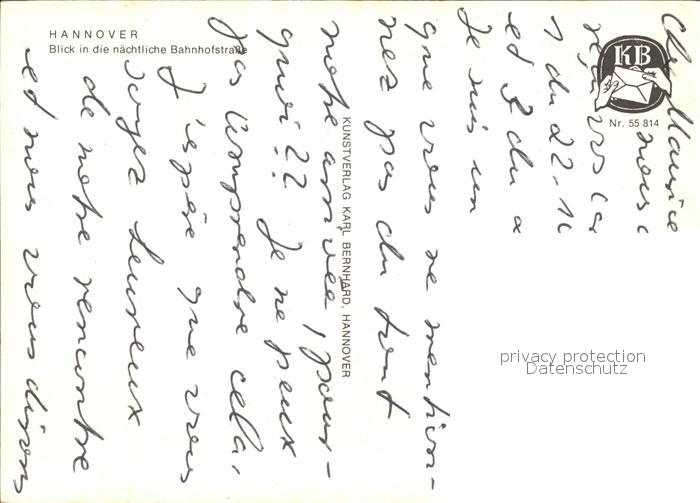 HANNOVER
Blick in die nächtliche Bahnhofstraße
KB
Nr. 55 814
KUNSTVERLAG KARL BERNHARD, HANNOVER
privacy protection
Datenschutz
Maurice
nous
1 du 22.
et 3 du
Je suis un
que vous ne mention-
nez pas du tout
notre arrivée, pour-
quoi?? Je ne peux
pas comprendre cela,
J'espère que vous
soyez heureux
de notre rencontre
et nous vous disons